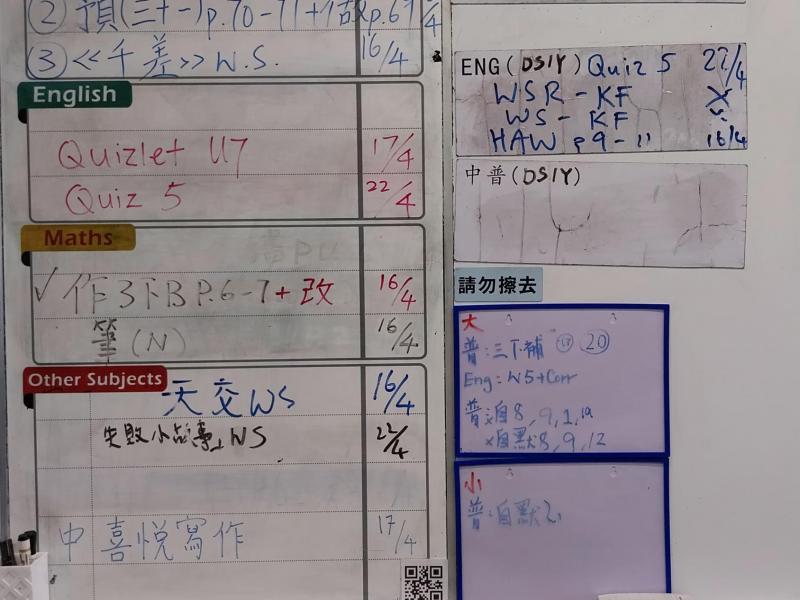 ② 預(三十一)p.70-71+改p.69
③ <<千差>> W.S. 16/4
English
Quizlet U7 17/4
Quiz 5 22/4
Maths
✓ 作3下B P.6-7+改 16/4
筆(N) 16/4
Other Subjects
天交WS 16/4
WS 22/4
中喜悅寫作 17/4
ENG(DSIY) Quiz 5 22/4
WSR-KF
WS-KF
HAW p9-11 16/4
中普(DSIY)
請勿擦去
大
普:三下補 ⑱ ⑳
Eng: W5+Corr
普:自8,9,1,
x自默8,9,12
小
普:自默